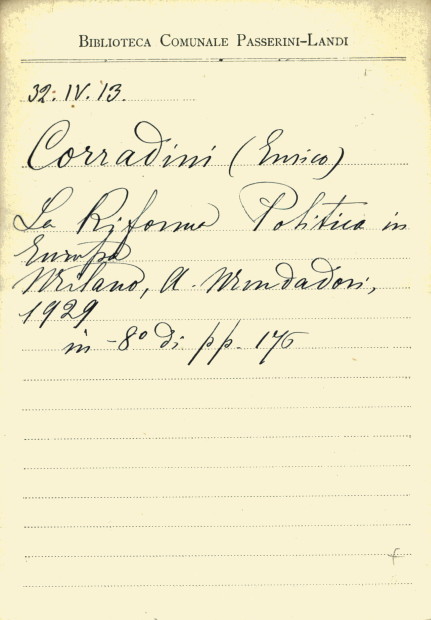 BIBLIOTECA COMUNALE PASSERINI-LANDI
32. IV. 13.
Corradini (Enrico)
La Riforma Politica in
Europa
Milano, A. Mondadori,
1929
in -8º di pp. 176